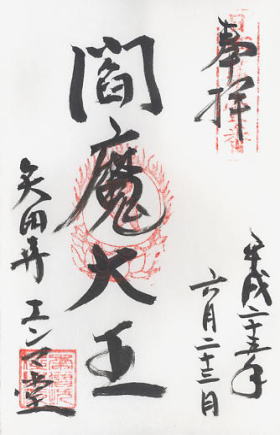 奉拝
平成二十五年
六月二十三日
閻魔大王
矢田寺 エンマ堂